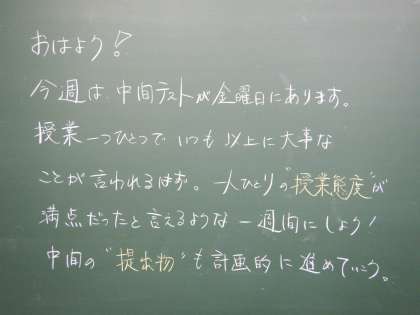 おはよう！
今週は、中間テストが金曜日にあります。
授業一つひとつで いつも以上に大事な
ことが言われるはず。一人ひとり"授業態度"が
満点だったと言えるような一週間にしよう！
中間の"提出物"も計画的に進めていこう。